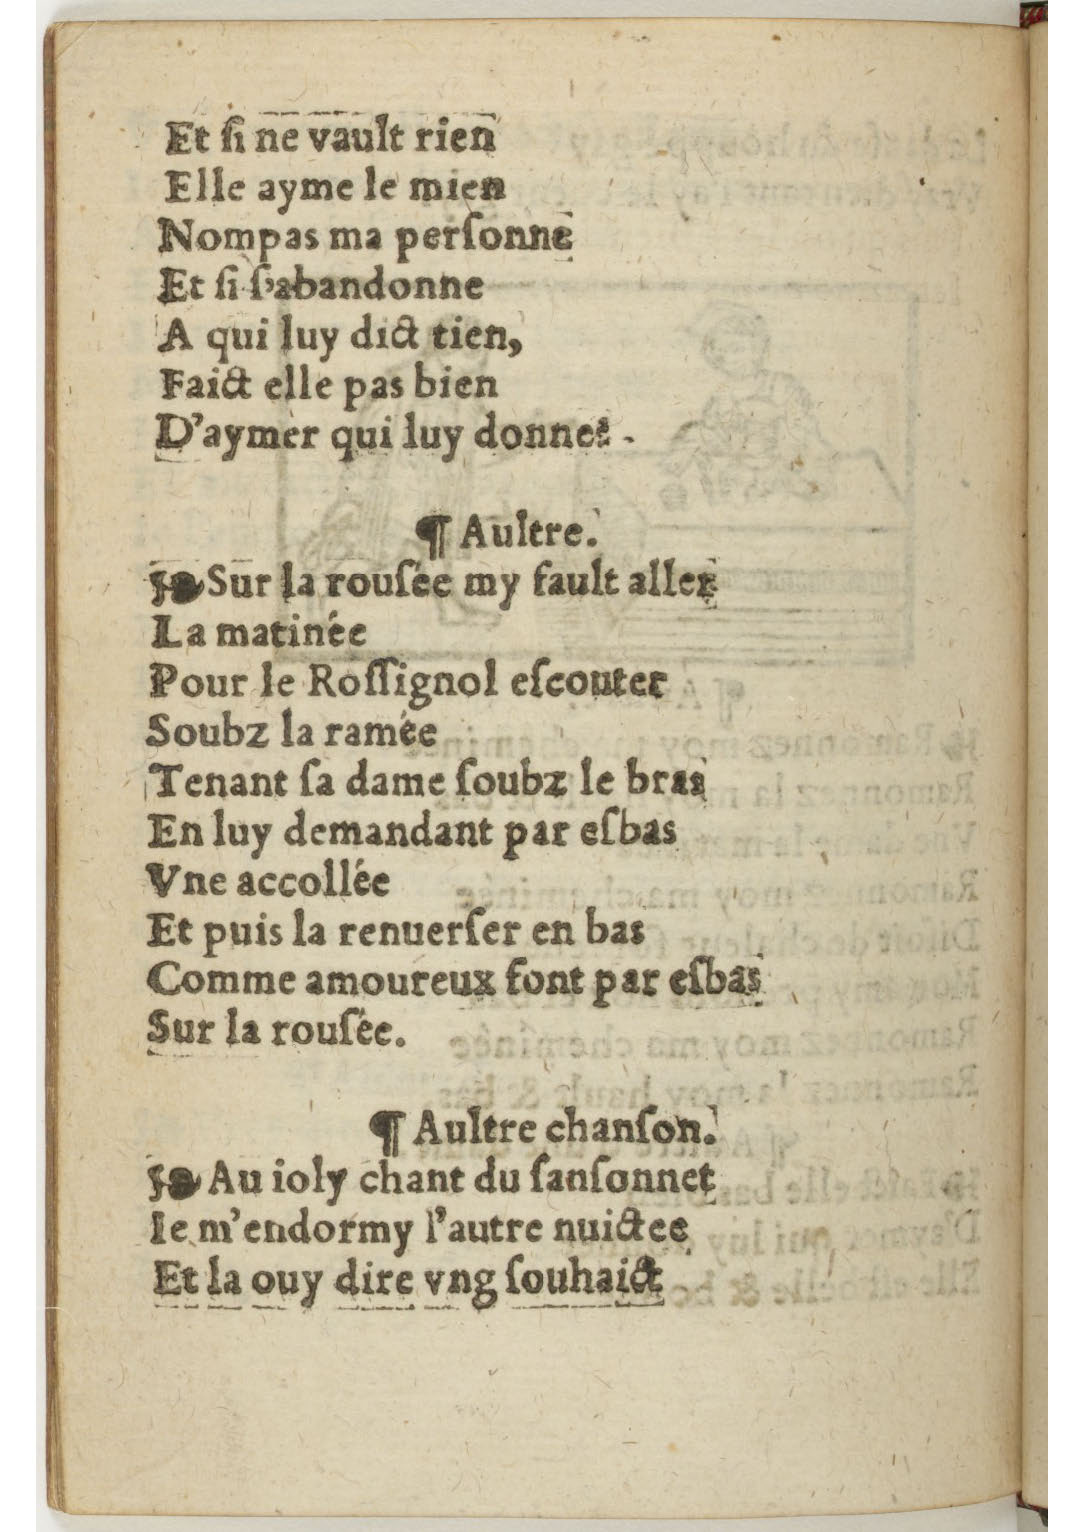 Et ſi ne vault rien
Elle ayme le mien
Nompas ma perſonne
Et ſi ſ'abandonne
A qui luy dict tien,
Faict elle pas bien
D'aymer qui luy donne?
¶ Aultre.
❧ Sur la rouſée my fault aller
La matinée
Pour le Roſſignol eſcouter
Soubz la ramée
Tenant ſa dame ſoubz le bras
En luy demandant par eſbas
Vne accollée
Et puis la renuerſer en bas
Comme amoureux font par eſbas
Sur la rouſée.
¶ Aultre chanſon.
❧ Au ioly chant du ſanſonnet
Ie m'endormy l'autre nuictee
Et la ouy dire vng ſouhaict